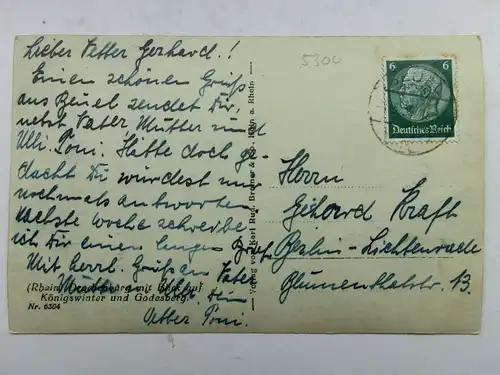 Lieber Vetter Gerhard.!
Einen schönen Gruß
aus Beuel sendet Dir,
nebst Vater, Mutter und
Ulli, Toni. Hätte doch ge-
dacht Du würdest mir
nochmals antworten
Nächste Woche schreibe
ich Dir einen langen Brief.
Mit herzl. Grüßen Vater
Mutter u. Ulli. Dein
Vetter Toni.
(Rhein) Drachenburg mit Blick auf
Königswinter und Godesberg.
Nr. 6304
Verlag von Karl Rud. Bremer & Co., Köln a. Rhein.
5300
6 6
Deutsches Reich
Herrn
Gerhard Kraft
Berlin-Lichtenrade
Blumenthalstr. 13.